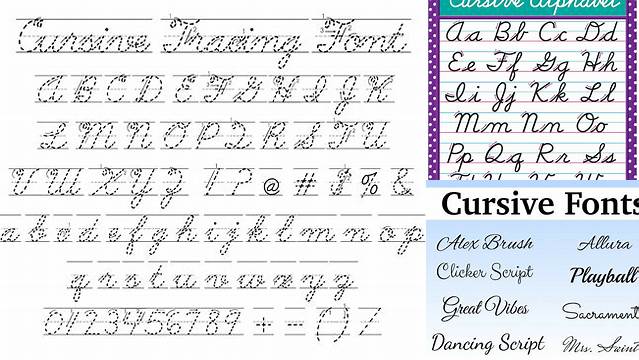 Cursive Tracing Font
A B C D E F G H I J K
L M N O P Q R S T U
V W X Y Z ! ? @ # $ % &
a b c d e f g h i j k l m n o p
q r s t u v w x y z
0 1 2 3 4 5 6 7 8 9 + - ( ) /
Cursive Alphabet
Aa Bb Cc Dd
Ee Ff Gg Hh
Ii Jj Kk Ll
Mm Nn Oo
Pp Qq Rr Ss
Cursive Fonts
Alex Brush Allura
Clicker Script Playball
Great Vibes Sacrament
Dancing Script Mrs.